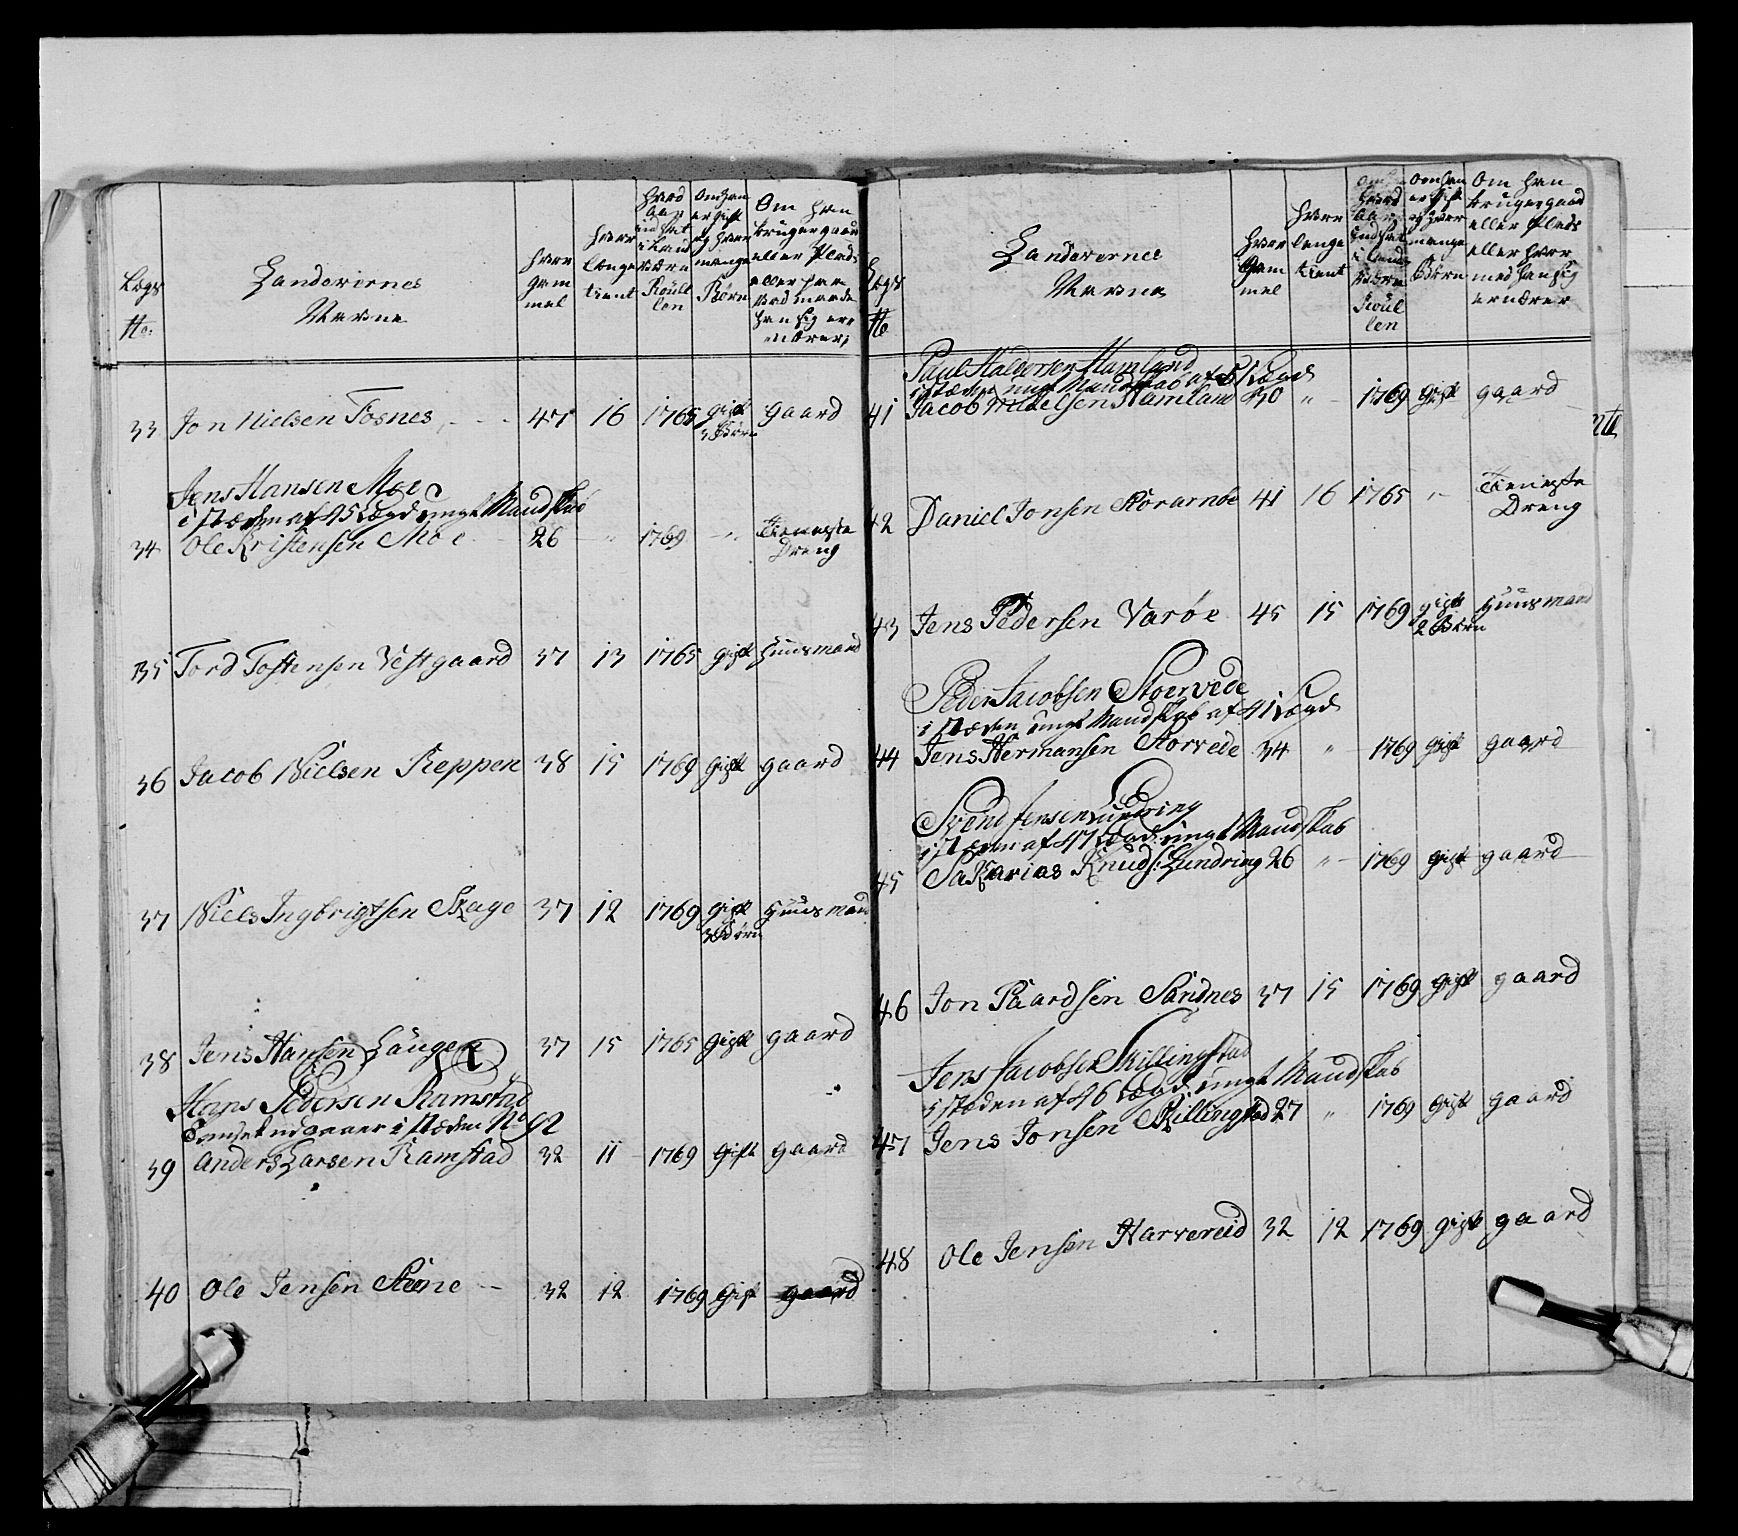 Legs No:
Landevernes Nevne
Hvor gam mel
hvor lenge tient
hvad Aar indsat i Land værn Roul len
Om han er gift og hvor mange Børn
Om han bruger gaard eller Plads eller
33 Jon Nielsen Fosnes 47 16 1765 gift 3 Børn gaard
Jens Hansen Moe
i stæden af 45 Legd ungt Mandskab
34 Ole Kristensen Moe 26 " 1769 " Tieneste Dreng
35 Tord Tostensen Vestgaard 37 13 1765 gift Huusmand
36 Jacob Nielsen Reppen 38 15 1769 gift gaard
37 Niels Ingbrigtsen Skage 37 12 1769 gift 3 Børn Huusmand
38 Jens Hansen 37 15 1765 gift gaard
Hans Pedersen Ramstad
i stæden No 92
39 Anders Larsen Ramstad 32 11 1769 gift gaard
40 Ole Jensen 32 12 1769 Gift gaard
Legs No
Landevernes Nevne
Hvor Gam mel
hvor lenge tient
hvad Aar indsat i Land værn Roul len
Om han er gift og hvor mange Børn
Om han bruger gaard eller Plads eller hvor med han sig ernærer
Paul Haldorsen Hamland
i stæden ungt Mandskab af 51 Legd
41 Jacob Mikelsen Hamland 30 " 1769 gift gaard
42 Daniel Jonsen 41 16 1765 " Tieneste Dreng
43 Jens Pedersen Varøe 45 15 1769 gift 2 Børn Huusmand
Peder Jacobsen Stoervede
i stæden ungt Mandskab af 41 Legd
44 Jens Hermansen Storvede 34 " 1769 gift gaard
Svend Jensen Lundring
i stæden af 47 Legd ungt Mandskab
45 Sakarias Knuds: Lundring 26 " 1769 gift gaard
46 Jon Paardsen Sandnes 37 15 1769 gift gaard
Jens Jacobsen Skillingstad
i stæden af 46 Legd ungt Mandskab
47 Jens Jonsen Skillingstad 27 " 1769 gift gaard
48 Ole Jensen Harvereid 32 12 1769 gift gaard